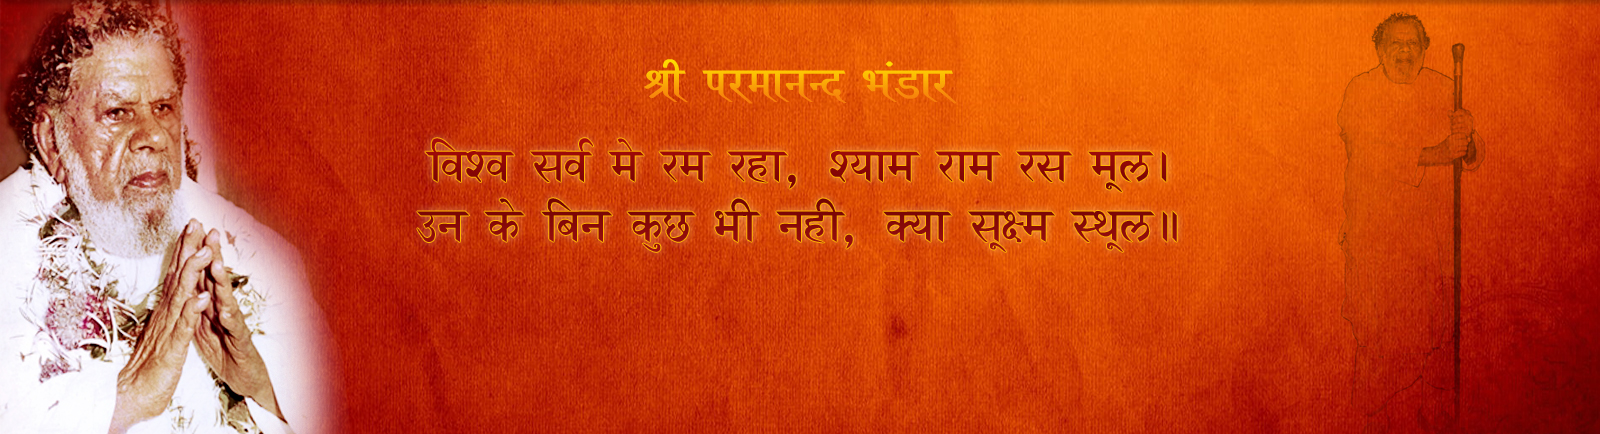 श्री परमानन्द भंडार
विश्व सर्व मे रम रहा, श्याम राम रस मूल।
उन के बिन कुछ भी नही, क्या सूक्ष्म स्थूल॥